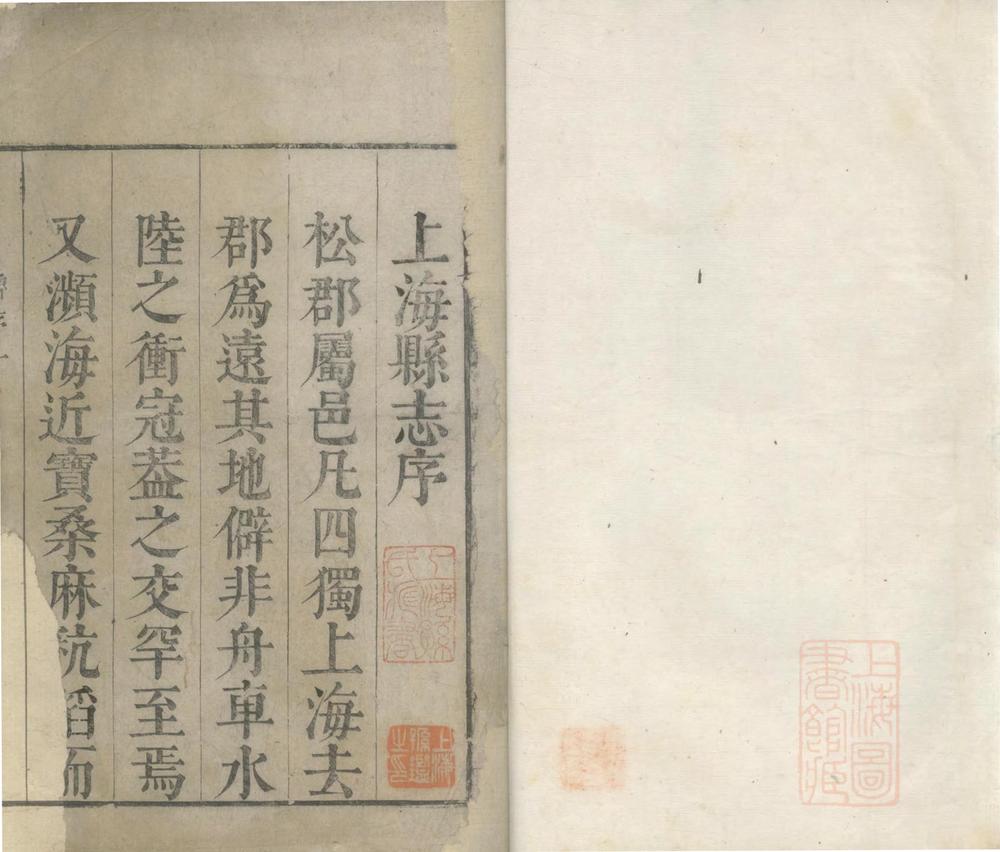 上海圖
書館藏
上海縣志序
松郡屬邑凡四獨上海去
郡爲遠其地僻非舟車水
陸之衝冠葢之交罕至焉
又瀕海近寶桑麻秔稻而